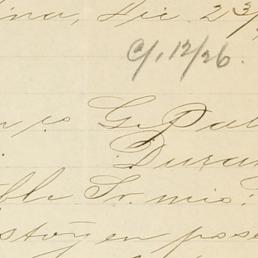 ina, Dic. 23/
C/, 12/26.
n is G. Pal
Duran
ble Sr. mio:
stoy en pose